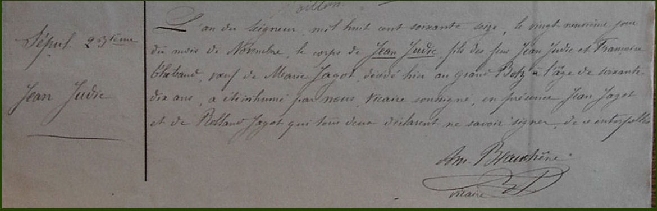 Sépul
Jean Judic
L'an du Seigneur, mil huit cent soixante seize, le vingt neuvième jour
du mois de Novembre, le corps de Jean Judic fils des feu Jean Judic et Françoise
veuf de Marie Jagot, décédé hier au grand Betz à l'âge de soixante
dix ans, a été inhumé par nous, Vicaire soussigné, en présence Jean Jagot
et de Rolland Jagot qui tous deux déclarent ne savoir signer, de ce interpellés
Vicaire